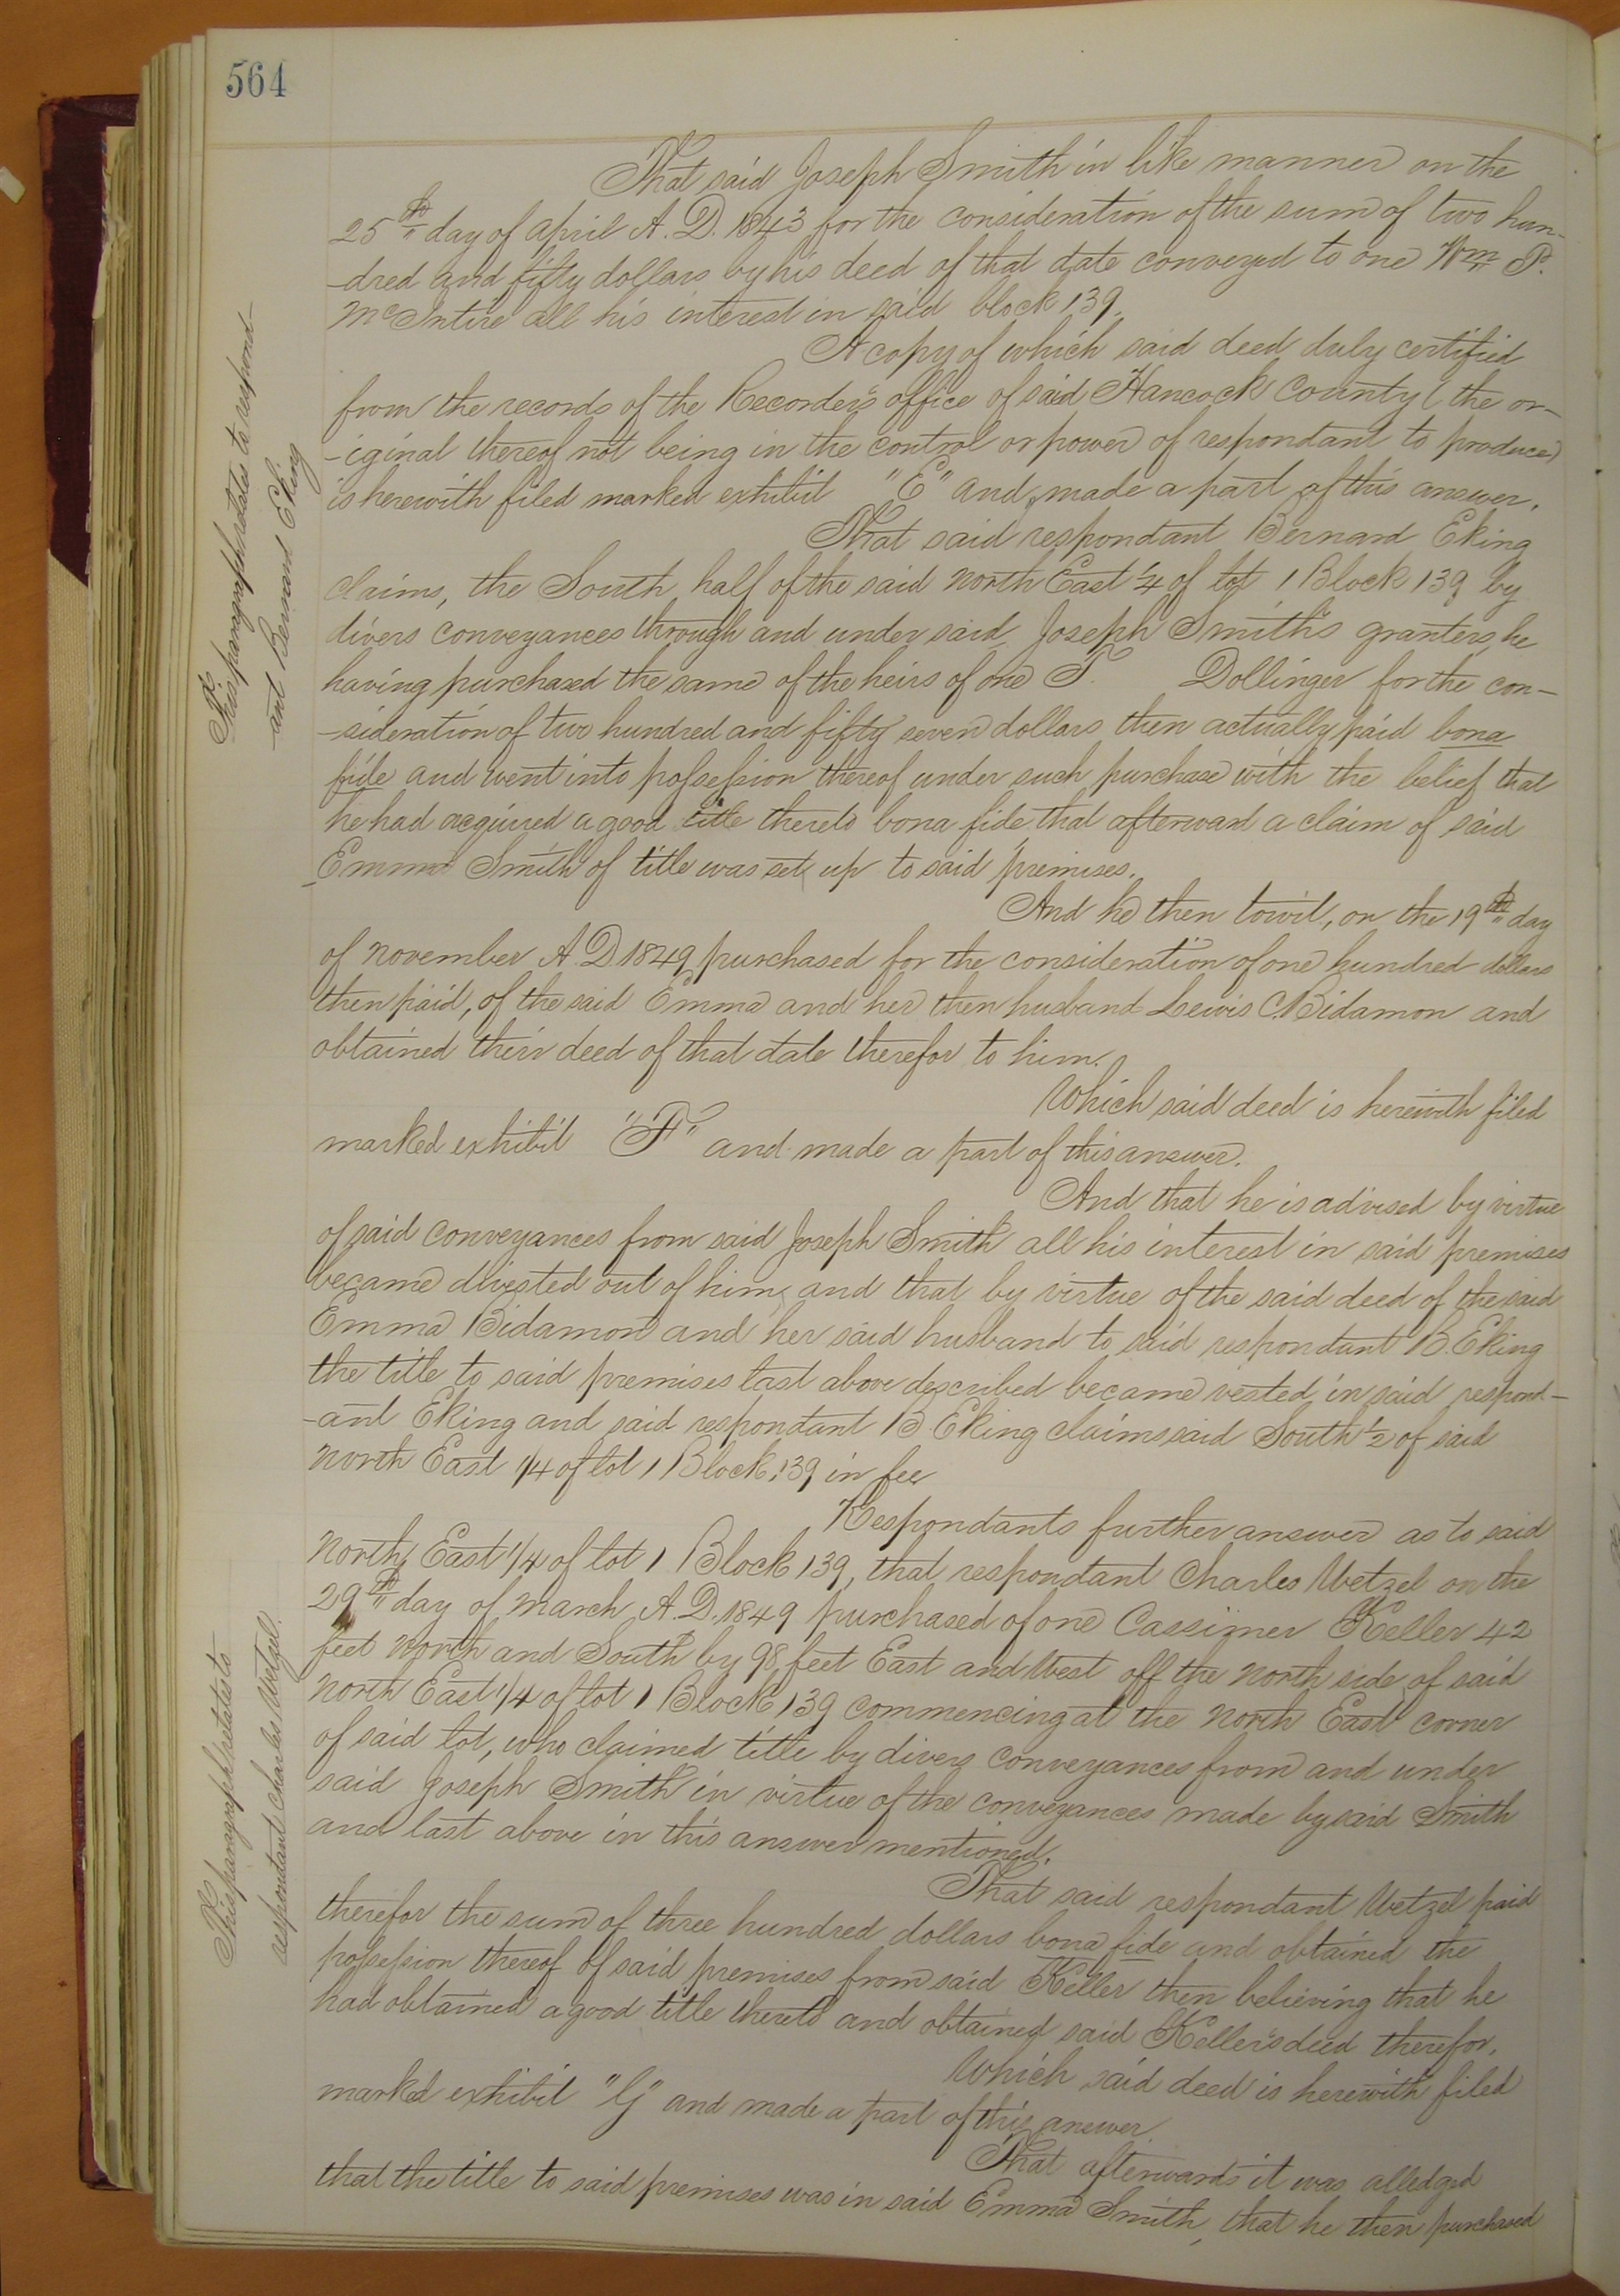 564
That said Joseph Smith in like manner on the
25th day of April A. D. 1843 for the consideration of the sum of two hun-
-dred and fifty dollars by his deed of that date conveyed to one Wm P.
McIntire all his interest in said block 139.
A copy of which said deed duly certified
from the records of the Recorder's office of said Hancock County (the or-
-iginal thereof not being in the control or power of respondant to produce)
is herewith filed marked exhibit "E" and made a part of this answer.
That said respondant Bernard Eking
claims, the South half of the said North East 1/4 of lot 1 Block 139 by
divers conveyances through and under said Joseph Smith's granters, he
having purchased the same of the heirs of one T. Dollinger for the con-
-sideration of two hundred and fifty seven dollars then actually paid bona
fide and went into possession thereof under such purchase with the belief that
he had acquired a good title thereto bona fide that afterward a claim of said
Emma Smith of title was set up to said premises.
And he then towit, on the 19th day
of November A. D. 1849 purchased for the consideration of one hundred dollars
then paid, of the said Emma and her then husband Lewis C. Bidamon and
obtained their deed of that date therefor to him.
Which said deed is herewith filed
marked exhibit "F" and made a part of this answer.
And that he is advised by virtue
of said conveyances from said Joseph Smith all his interest in said premises
became divested out of him, and that by virtue of the said deed of the said
Emma Bidamon and her said husband to said respondant B. Eking
the title to said premises last above described became vested in said respond-
-ant Eking and said respondant B. Eking claims said South 1/2 of said
North East 1/4 of lot 1 Block 139 in fee
Respondants further answer as to said
North East 1/4 of lot 1 Block 139, that respondant Charles Wetzel on the
29th day of March A. D. 1849 purchased of one Cassimer Keller 42
feet North and South by 98 feet East and West off the North side of said
North East 1/4 of lot 1 Block 139 commencing at the North East corner
of said lot, who claimed title by divers conveyances from and under
said Joseph Smith in virtue of the conveyances made by said Smith
and last above in this answer mentioned.
That said respondant Wetzel paid
therefor the sum of three hundred dollars bona fide and obtained the
possession thereof of said premises from said Keller then believing that he
had obtained a good title thereto and obtained said Keller's deed therefor.
Which said deed is herewith filed
marked exhibit "G" and made a part of this answer.
That afterwards it was alledged
that the title to said premises was in said Emma Smith, that he then purchased
This paragraph relates to respond-
-ant Bernard Eking
This paragraph relates to
respondant Charles Wetzel.